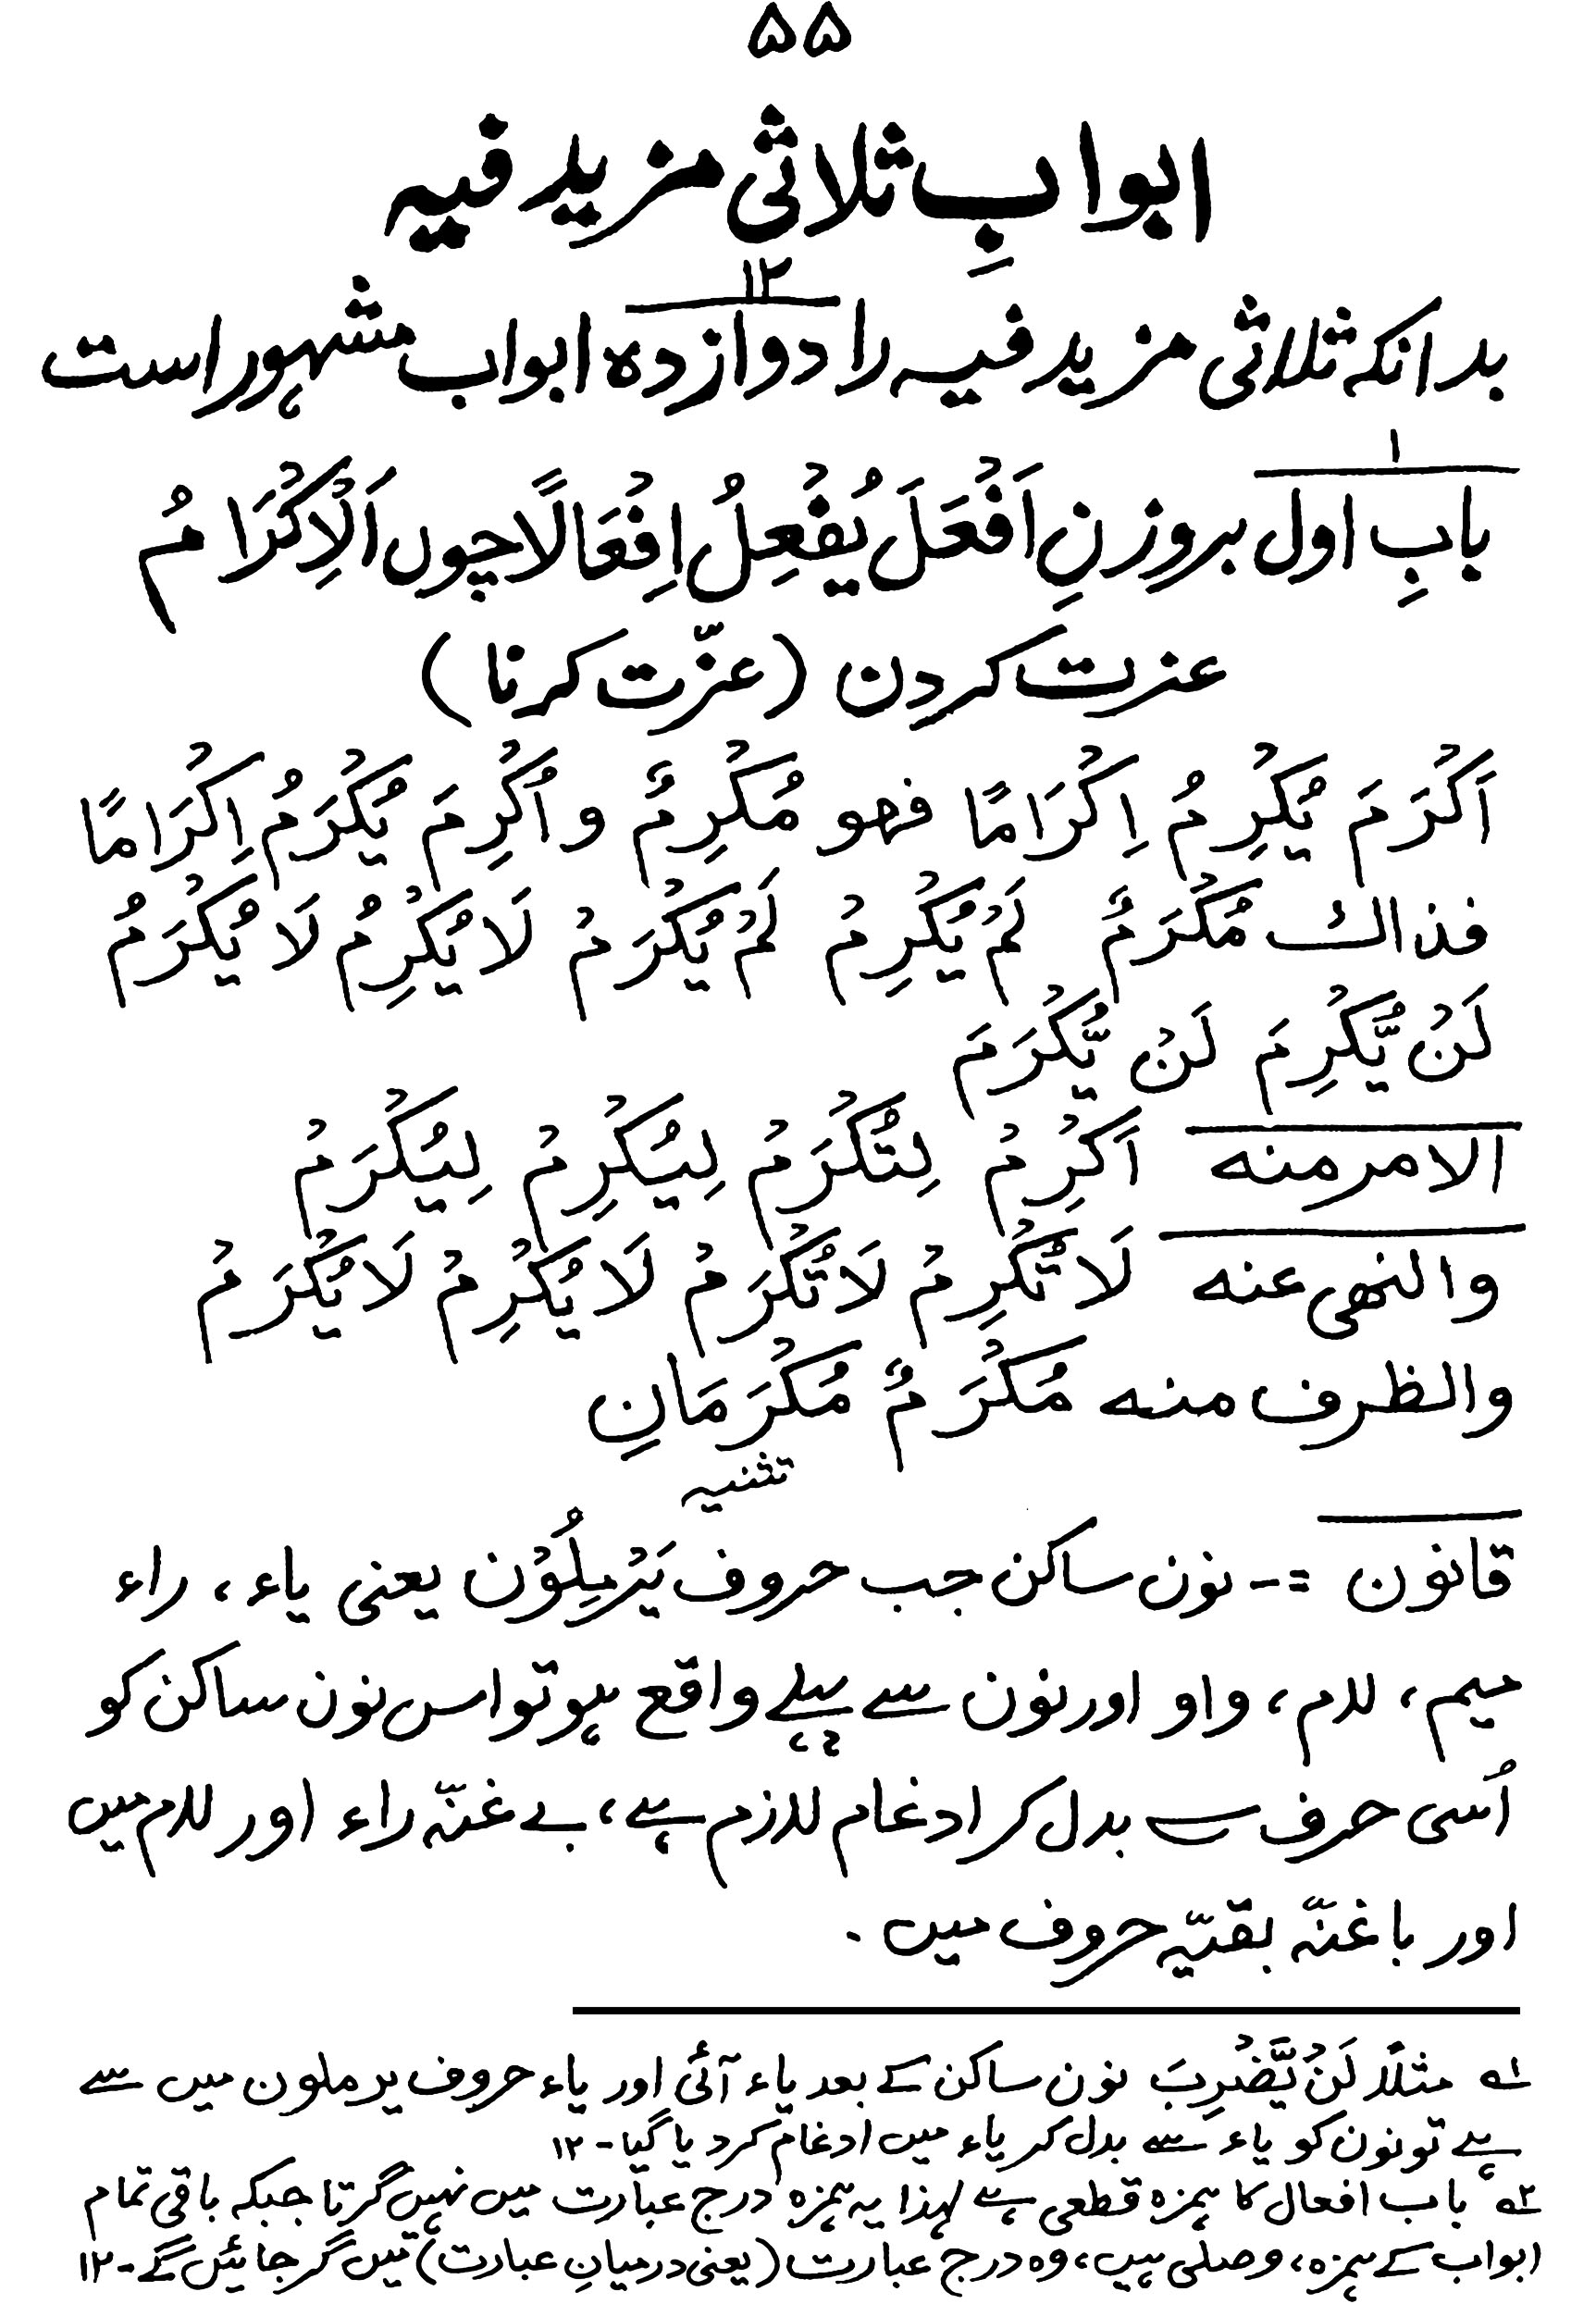 ۵۵
ابوابِ ثلاثی مزید فیہ
۱۲
بدانکہ ثلاثی مزید فیہ را دوازدہ ابواب مشہور است
۱
بابِ اول بروزنِ اَفْعَلَ یُفْعِلُ اِفْعَالًا چوں اَلْاِکْرَامُ
عزت کردن (عزّت کرنا)
اَکْرَمَ یُکْرِمُ اِکْرَامًا فہو مُکْرِمٌ و اُکْرِمَ یُکْرَمُ اِکْرَامًا
فذاك مُکْرَمٌ لَمْ یُکْرِمْ لَمْ یُکْرَمْ لَا یُکْرِمُ لَا یُکْرَمُ
لَنْ یُّکْرِمَ لَنْ یُّکْرَمَ
الامر منه اَکْرِمْ لِتُکْرَمْ لِیُکْرِمْ لِیُکْرَمْ
والنهی عنه لَا تُکْرِمْ لَا تُکْرَمْ لَا یُکْرِمْ لَا یُکْرَمْ
والظرف منه مُکْرَمٌ مُکْرَمَانِ
تثنیہ
قانون :- نون ساکن جب حروف یَرْمِلُوْن یعنی یاء ، راء
میم ، لام ، واو اور نون سے پہلے واقع ہو تو اس نون ساکن کو
اُسی حرف سے بدل کر ادغام لازم ہے ، بے غنّہ راء اور لام میں
اور با غنّہ بقیّہ حروف میں ۔
۱؎ مثلًا لَنْ یَّضْرِبَ نون ساکن کے بعد یاء آئی اور یاء حروف یرملون میں سے
ہے تو نون کو یاء سے بدل کر یاء میں ادغام کر دیا گیا - ۱۲
۲؎ باب افعال کا ہمزہ قطعی ہے لہذا یہ ہمزہ درج عبارت میں نہیں گرتا جبکہ باقی تمام
ابواب کے ہمزہ، وصلی ہیں، وہ درج عبارت (یعنی درمیانِ عبارت) میں گر جائیں گے - ۱۲